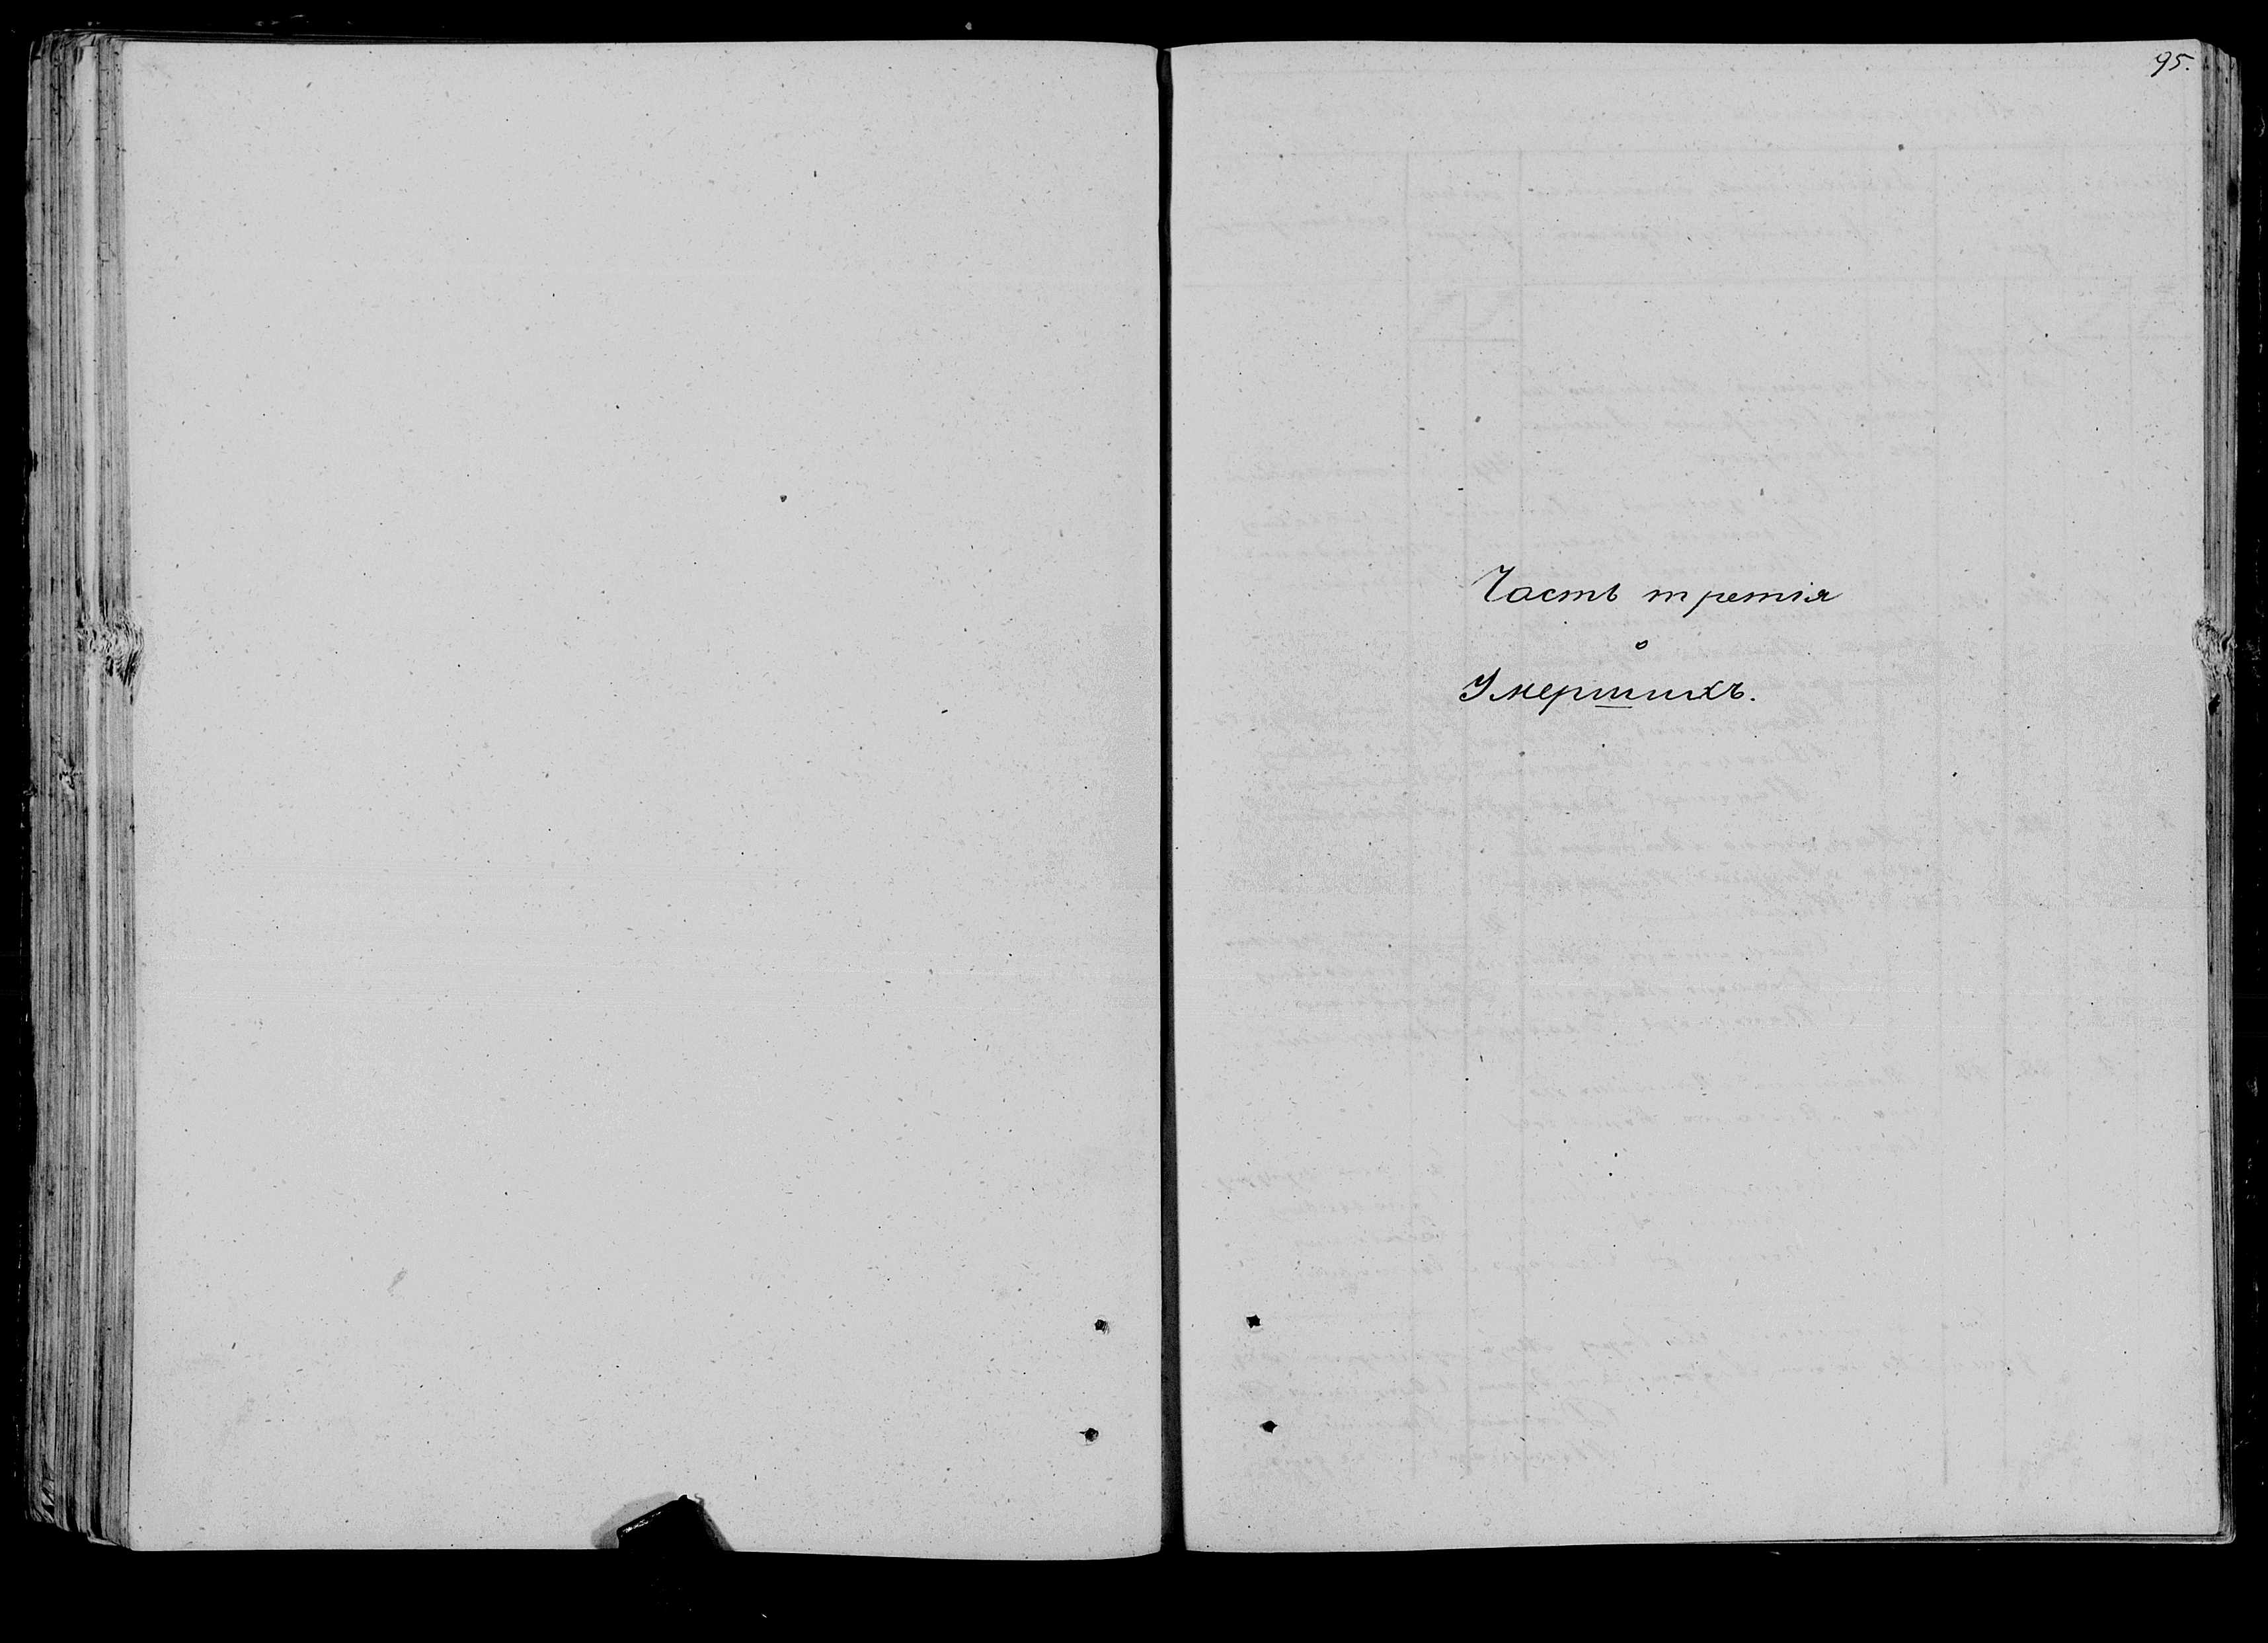 95.
Часть третія
о
Умершихъ.